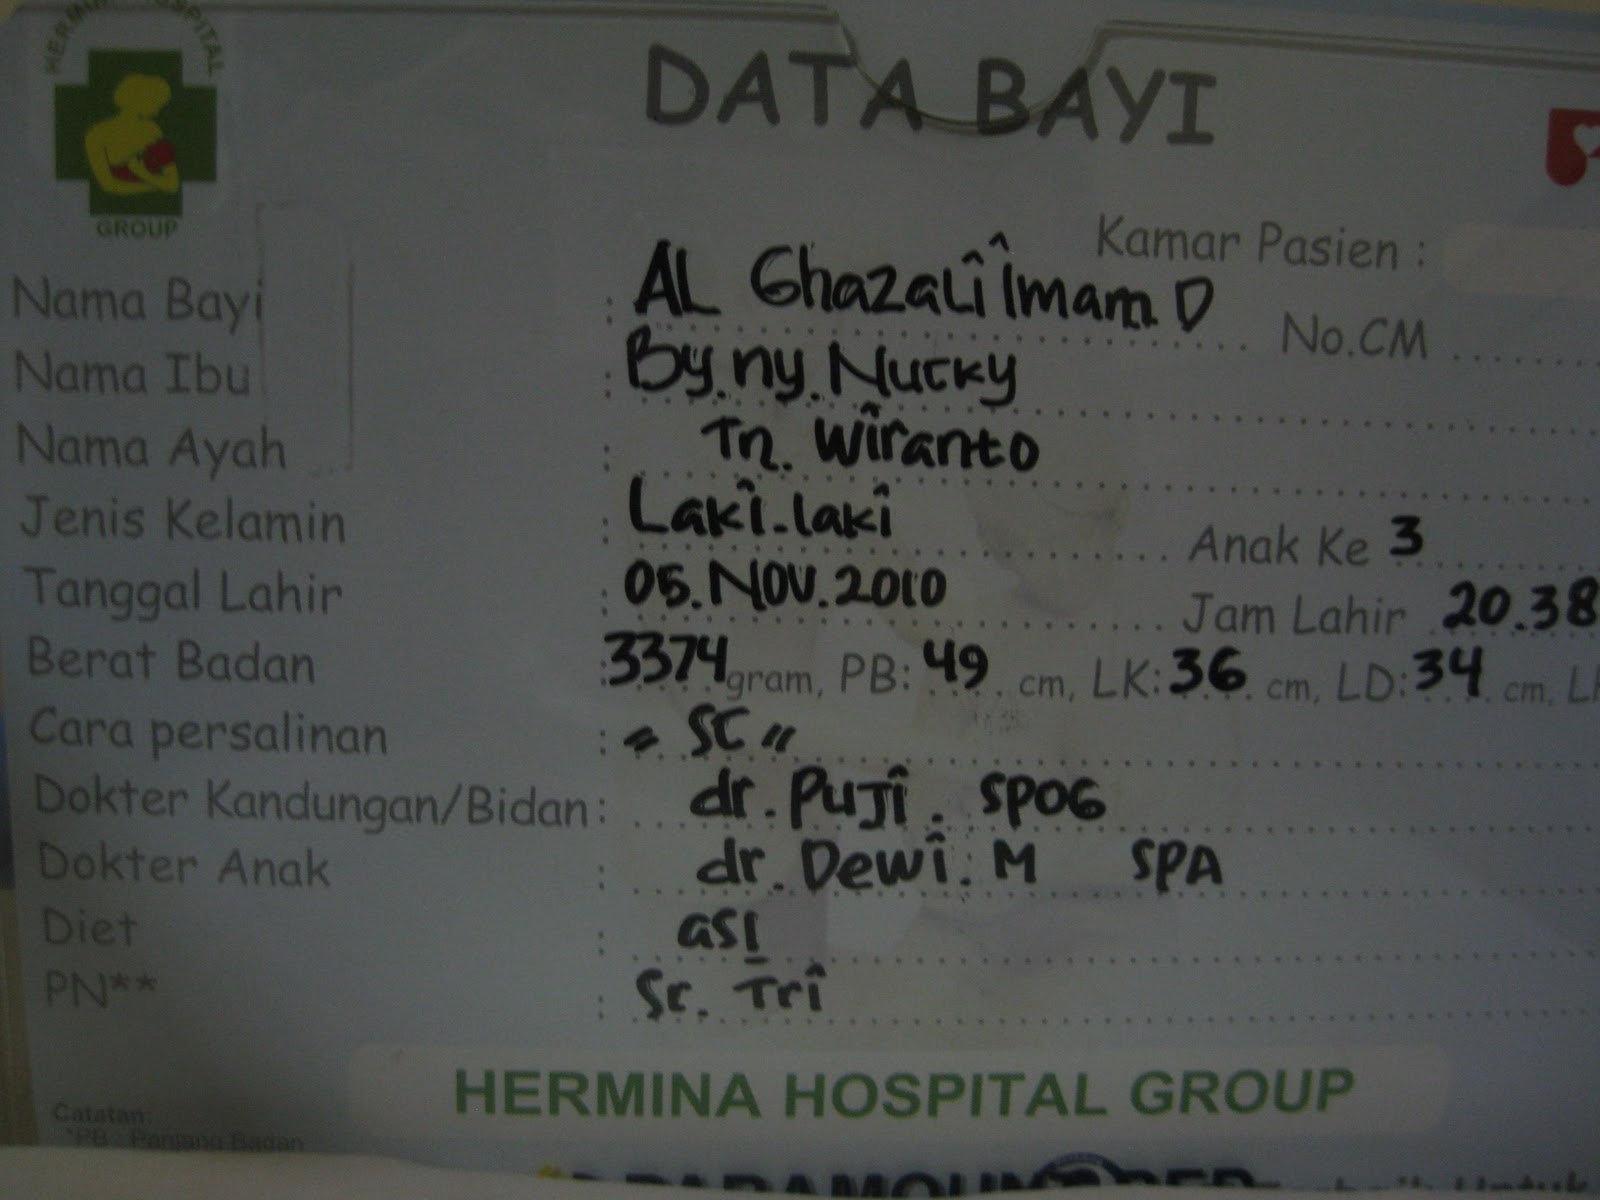 HERMINA HOSPITAL
GROUP
DATA BAYI
Kamar Pasien :
Nama Bayi : AL Ghazali Imam D No.CM
Nama Ibu : By. ny. Nucky
Nama Ayah : Tn. Wiranto
Jenis Kelamin : Laki-laki Anak Ke 3
Tanggal Lahir : 05. NOV. 2010 Jam Lahir 20.38
Berat Badan : 3374 gram, PB: 49 cm, LK: 36 cm, LD: 34 cm,
Cara persalinan : " SC "
Dokter Kandungan/Bidan : dr. Puji. SPOG
Dokter Anak : dr. Dewi. M SPA
Diet : asi
PN** : Sr. Tri
HERMINA HOSPITAL GROUP
Catatan:
*PB : Panjang Badan